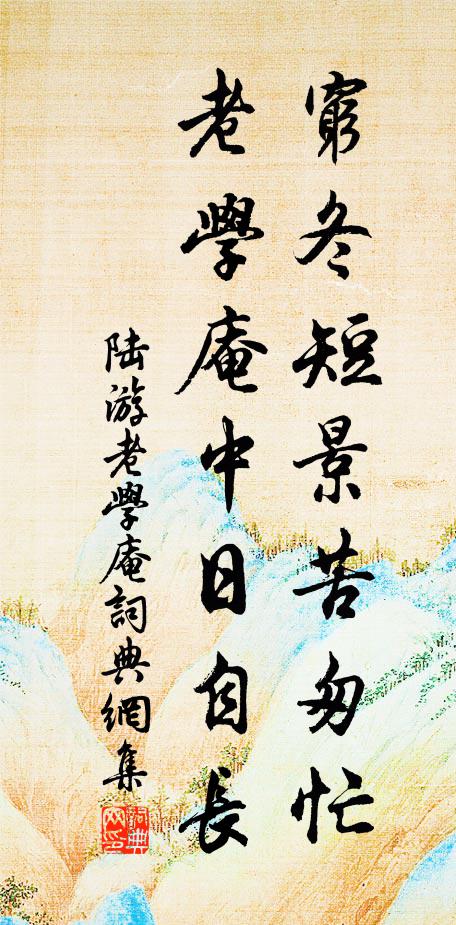 窮冬短景苦匆忙
老學庵中日自長
陆游老學庵詞典網集
詞典网印